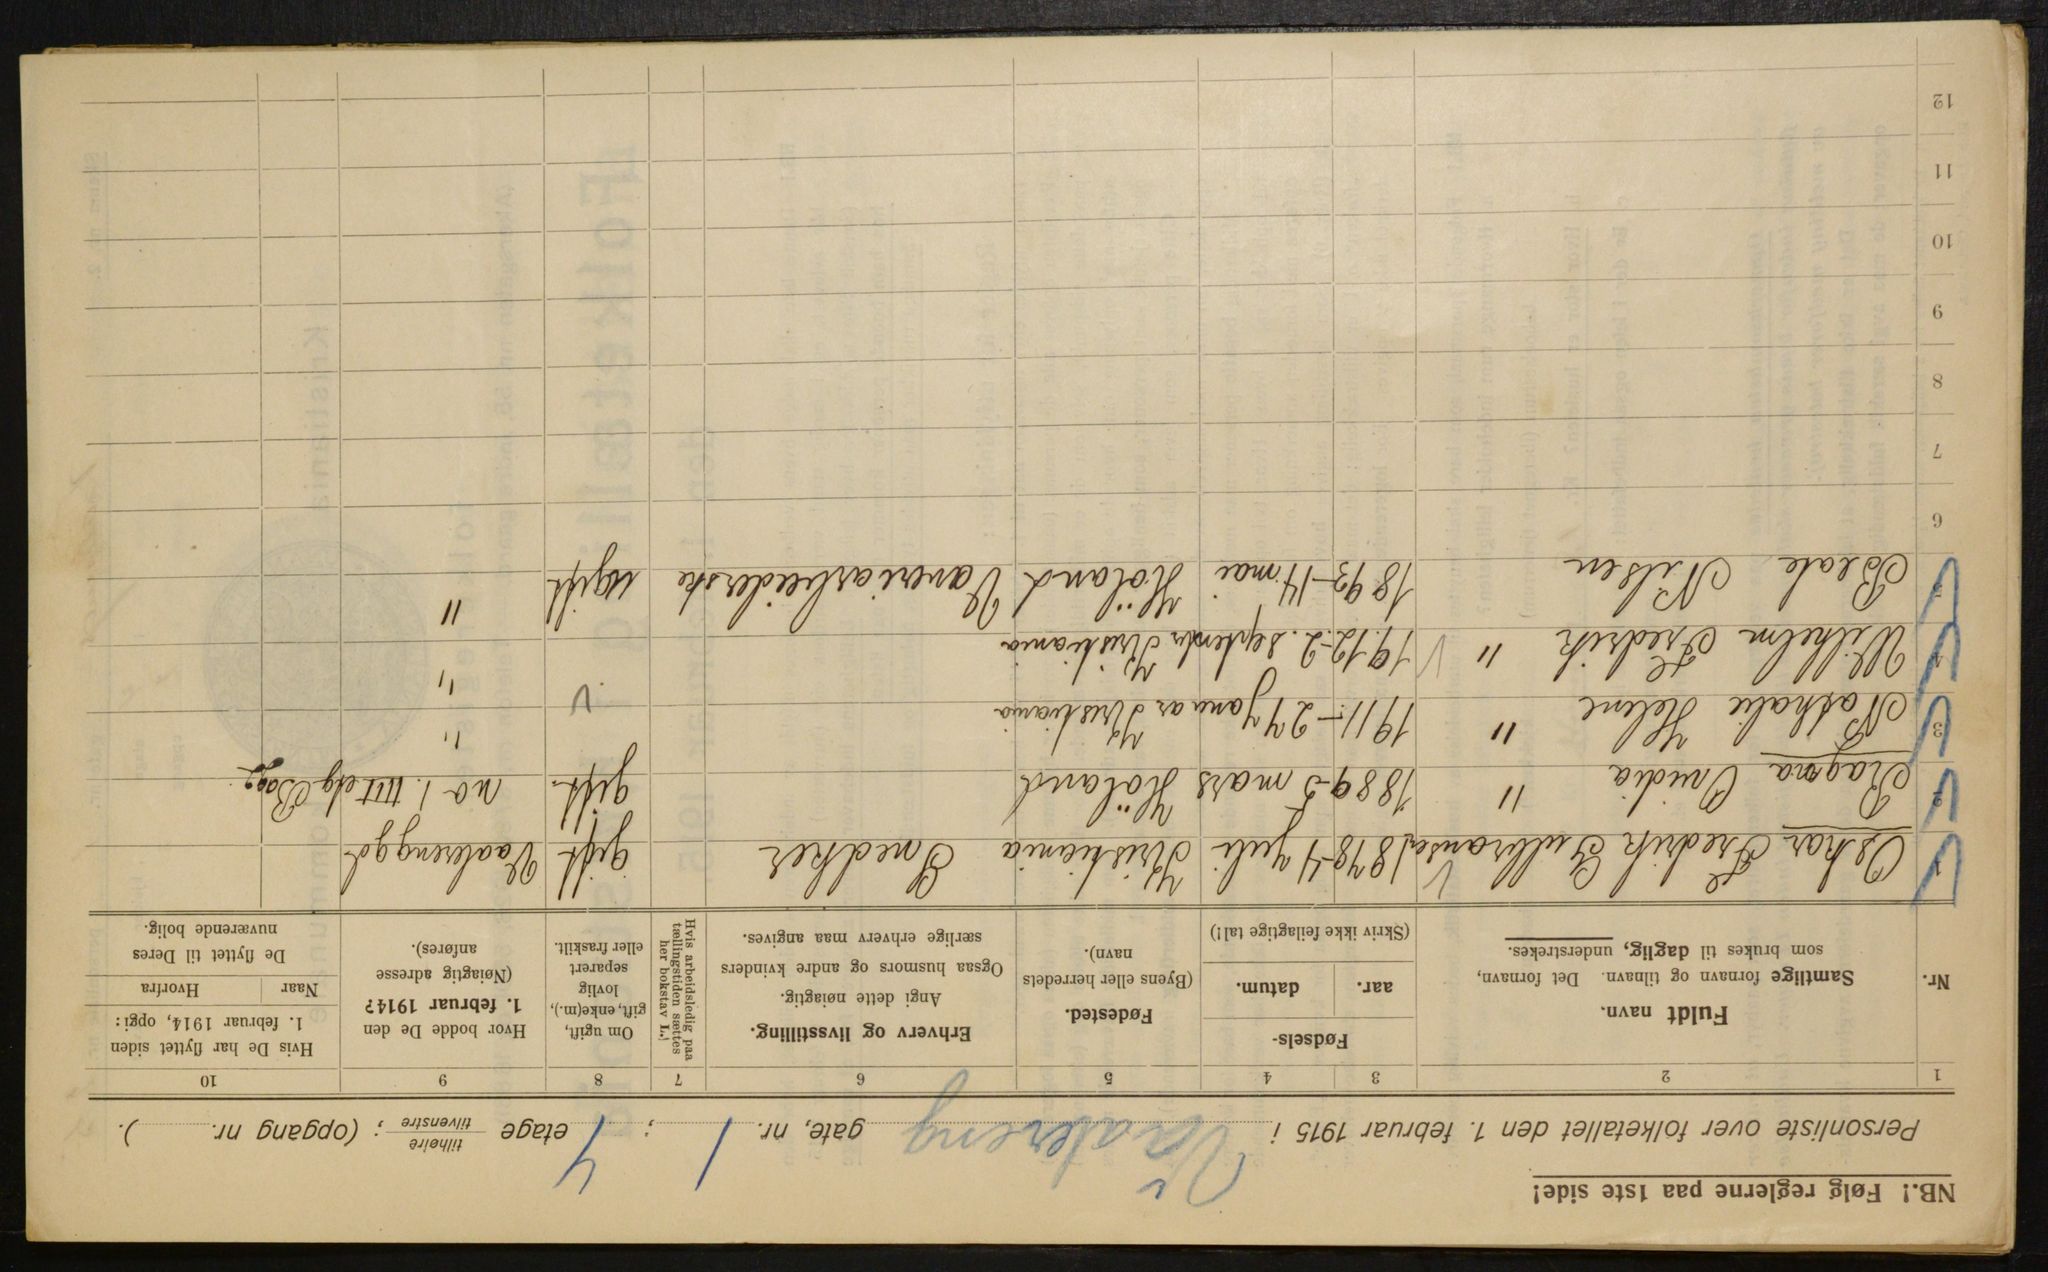 NB.! Følg reglerne paa 1ste side!
Personliste over folketallet den 1. februar 1915 i Vaalereng gate, nr. 1 ; 4 etage tilhøire tilvenstre ; (opgang nr. ).
1 2 3 4 5 6 7 8 9 10
Nr. Fuldt navn. Samtlige fornavn og tilnavn. Det fornavn, som brukes til daglig, understrekes.
Fødsels- aar. datum. (Skriv ikke feilagtige tal!)
Fødested. (Byens eller herredets navn).
Erhverv og livsstilling. Angi dette nøiagtig. Ogsaa husmors og andre kvinders særlige erhverv maa angives.
Hvis arbeidsledig paa tællingstiden sættes her bokstav L.!
Om ugift, gift, enke(m.), lovlig separert eller fraskilt.
Hvor bodde De den 1. februar 1914? (Nøiagtig adresse anføres).
Hvis De har flyttet siden 1. februar 1914, opgi: Naar Hvorfra De flyttet til Deres nuværende bolig.
1 Oskar Fredrik Gulbransen 1878 4 juli Kristiania Snedker gift Vaalerenggd
2 Ragna Ovidia " 1889 5 mars Høland gift no 1. IIII etg Bag.
3 Nathalie Helene " 1911 27 januar Kristiania "
4 Wilhelm Fredrik " 1912 2. september Kristiania "
5 Beate Nilsen 1893 14 mai Høland Væveriarbeiderske ugift "
6
7
8
9
10
11
12